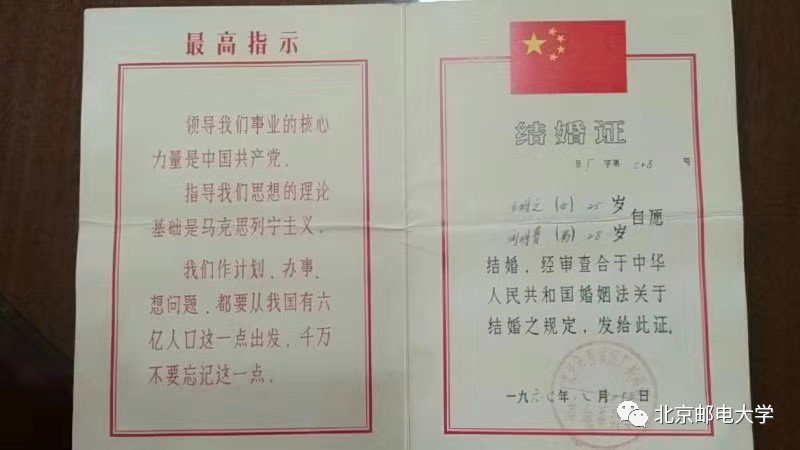 最高指示
领导我们事业的核心
力量是中国共产党.
指导我们思想的理论
基础是马克思列宁主义.
我们作计划、办事、
想问题、都要从我国有六
亿人口这一点出发，千万
不要忘记这一点.
结婚证
字第 号
(女) 25 岁
(男) 28 岁
自愿
结婚，经审查合于中华
人民共和国婚姻法关于
结婚之规定，发给此证.
一九六 年 月 日
北京邮电大学